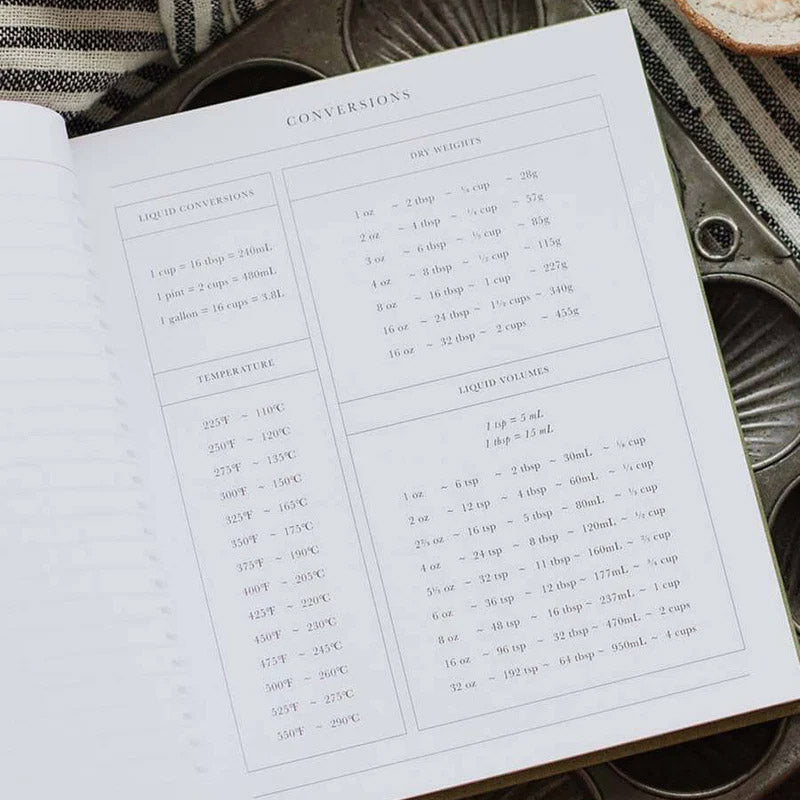 CONVERSIONS
LIQUID CONVERSIONS
1 cup = 16 tbsp = 240mL
1 pint = 2 cups = 480mL
1 gallon = 16 cups = 3.8L
TEMPERATURE
225°F ~ 110°C
250°F ~ 120°C
275°F ~ 135°C
300°F ~ 150°C
325°F ~ 165°C
350°F ~ 175°C
375°F ~ 190°C
400°F ~ 205°C
425°F ~ 220°C
450°F ~ 230°C
475°F ~ 245°C
500°F ~ 260°C
525°F ~ 275°C
550°F ~ 290°C
DRY WEIGHTS
1 oz ~ 2 tbsp ~ ⅛ cup ~ 28g
2 oz ~ 4 tbsp ~ ¼ cup ~ 57g
3 oz ~ 6 tbsp ~ ⅓ cup ~ 85g
4 oz ~ 8 tbsp ~ ½ cup ~ 115g
8 oz ~ 16 tbsp ~ 1 cup ~ 227g
16 oz ~ 24 tbsp ~ 1½ cups ~ 340g
16 oz ~ 32 tbsp ~ 2 cups ~ 455g
LIQUID VOLUMES
1 tsp = 5 mL
1 tbsp = 15 mL
1 oz ~ 6 tsp ~ 2 tbsp ~ 30mL ~ ⅛ cup
2 oz ~ 12 tsp ~ 4 tbsp ~ 60mL ~ ¼ cup
2⅔ oz ~ 16 tsp ~ 5 tbsp ~ 80mL ~ ⅓ cup
4 oz ~ 24 tsp ~ 8 tbsp ~ 120mL ~ ½ cup
5⅓ oz ~ 32 tsp ~ 11 tbsp ~ 160mL ~ ⅔ cup
6 oz ~ 36 tsp ~ 12 tbsp ~ 177mL ~ ¾ cup
8 oz ~ 48 tsp ~ 16 tbsp ~ 237mL ~ 1 cup
16 oz ~ 96 tsp ~ 32 tbsp ~ 470mL ~ 2 cups
32 oz ~ 192 tsp ~ 64 tbsp ~ 950mL ~ 4 cups